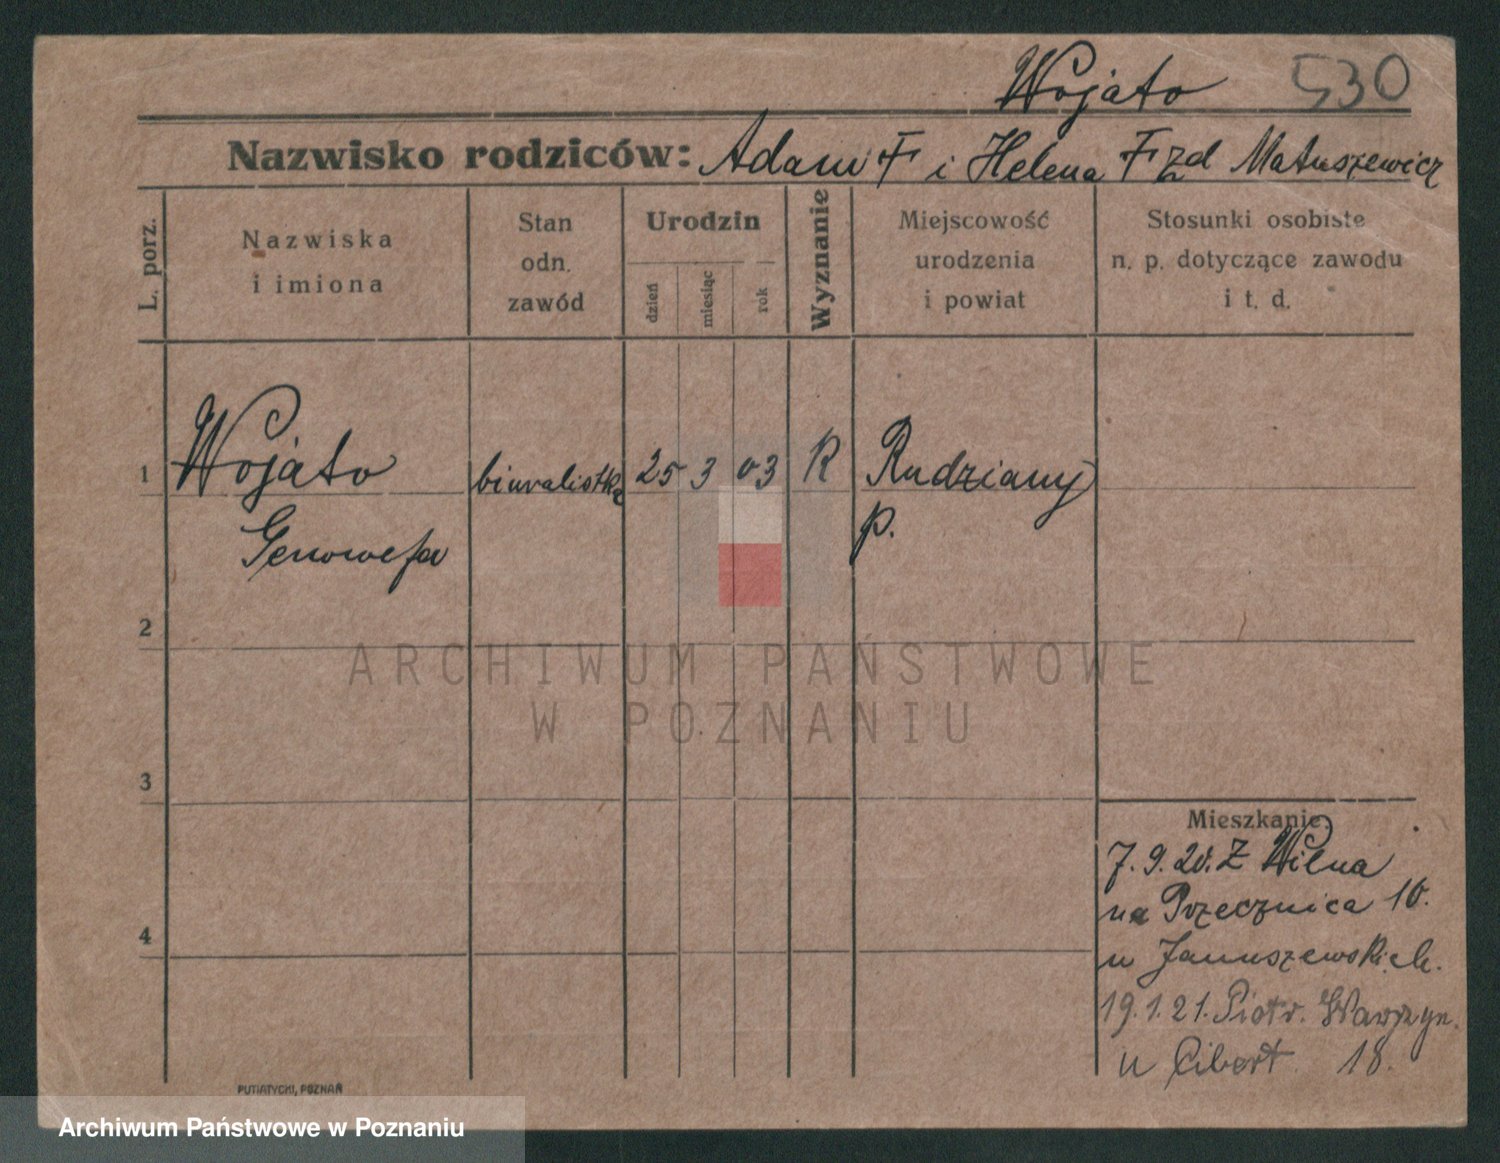 Wojato 530
Nazwisko rodziców: Adam † i Helena † zd Matuszewicz
L. porz.
Nazwiska
i imiona
Stan
odn.
zawód
Urodzin
dzień
miesiąc
rok
Wyznanie
Miejscowość
urodzenia
i powiat
Stosunki osobiste
n. p. dotyczące zawodu
i t. d.
1 Wojato biuralistka 25 3 03 R Rudziany
Genowefa p.
2
ARCHIWUM PAŃSTWOWE
W POZNANIU
3
Mieszkanie.
7.9.20. Z Wilna
na Przecznica 10.
u Januszewskich.
4
19.1.21. Piotr. Wawrzyn.
u Cibert 18.
PUTIATYCKI, POZNAŃ
Archiwum Państwowe w Poznaniu